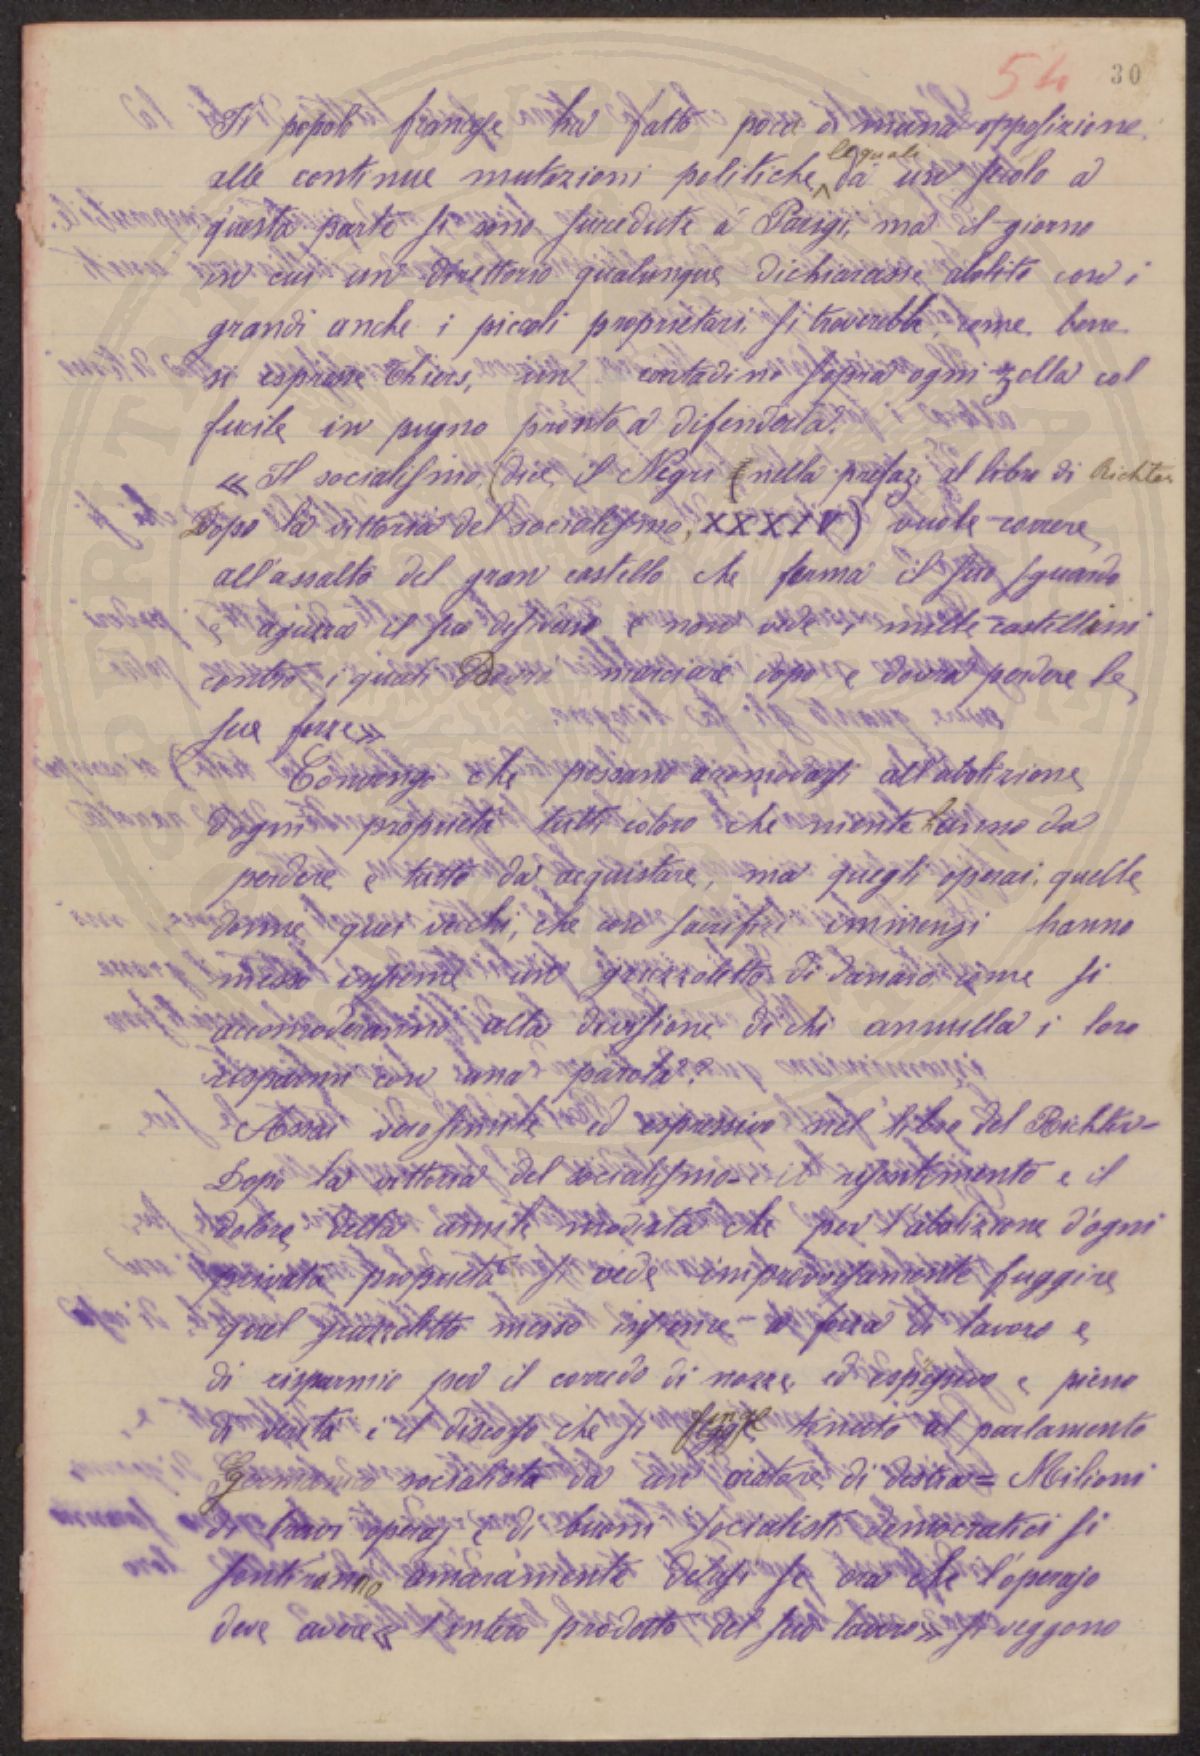 54 30
Il popolo francese ha fatto poca o niuna opposizione
alle continue mutazioni politiche, le quali da un secolo a
questa parte si sono succedute a Parigi, ma il giorno
in cui un direttorio qualunque dichiarasse aboliti con i
grandi anche i piccoli proprietari, si troverebbe, come bene
si espresse Thiers, un contadino sopra ogni zolla col
fucile in pugno pronto a difenderla.
« Il socialismo, (dice il Negri (nella prefaz. al libro di Richter
Dopo la vittoria del socialismo, XXXIV) vuole correre
all'assalto del gran castello che ferma il suo sguardo
e aguzza il suo desiderio e non vede i mille castellini
contro i quali dovrà marciare dopo e dovrà perdere le
sue forze»
Convengo che possano accomodarsi all'abolizione
d'ogni proprietà tutti coloro che niente hanno da
perdere e tutto da acquistare, ma quegli operai, quelle
donne, quei vecchi, che con sacrifizi immensi hanno
messo insieme un gruzzoletto di danaro come si
accomoderanno alla decisione di chi annulla i loro
risparmi con una parola?
Assai verosimile ed espressivo nel libro del Richter-
Dopo la vittoria del socialismo- è il risentimento e il
dolore della umile modista che per l'abolizione d'ogni
privata proprietà si vede improvvisamente fuggire
quel gruzzoletto messo insieme a forza di lavoro e
di risparmio per il corredo di nozze, ed espressivo e pieno
di verità è il discorso che si finge tenuto al parlamento
Germanico socialista da un oratore di destra= Milioni
di bravi operaj e di buoni socialisti democratici si
sentiranno amaramente delusi se ora che l'operajo
deve avere « l'intero prodotto del suo lavoro» si veggono